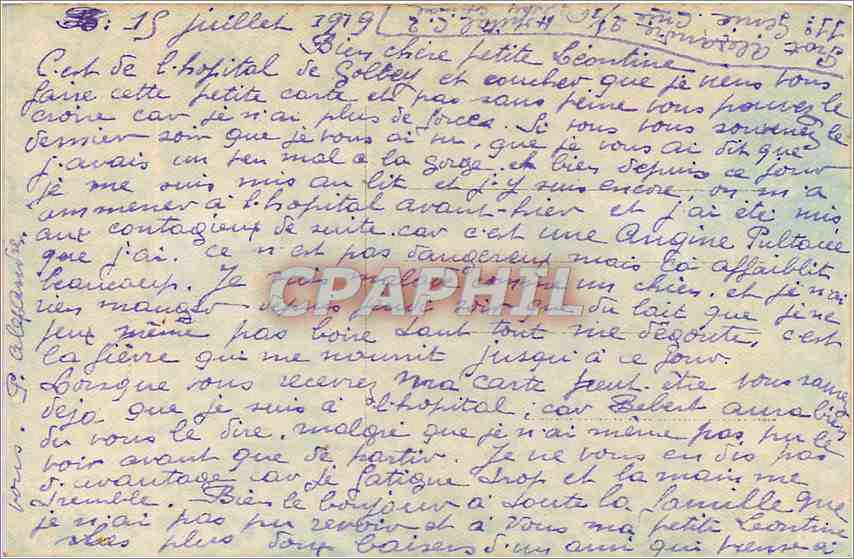 15 juillet 1919
Bien chère petite Léontine
C'est de l'hopital de et coucher que je viens vous
faire cette petite carte et pas sans peine vous pouvez le
croire car je n'ai plus de forces. Si vous vous souvenez le
dernier soir que je vous ai vu, que je vous ai dit que
j'avais un peu mal a la gorge. et bien depuis ce jour
je me suis mis au lit et j'y suis encore, on m'a
ammener à l'hopital avant-hier et j'ai été mis
aux contagieux de suite. car c'est une Angine Pultacée
que j'ai. ce n'est pas dangereux mais ça affaiblit
beaucoup. Je suis malade comme un chien. et je n'ai
rien manger depuis jeudi soir que du lait que je ne
peux même pas boire tant tout me dégoute, c'est
la fièvre qui me nourrit jusqu'à ce jour.
Lorsque vous recevrez ma carte peut-être vous saurez
deja que je suis à l'hopital, car Bebert aura bien
du vous le dire. malgre que je n'ai même pas pu le
voir avant que de partir. Je ne vous en dis pas
d'avantage car je fatigue trop et la main me
tremble. Bien le bonjour à toute la famille que
je n'ai pas pu revoir et a Vous ma petite Léontine
mes plus doux baisers d'un ami qui pense à
vous. P. Alexandre.
CPAPHIL